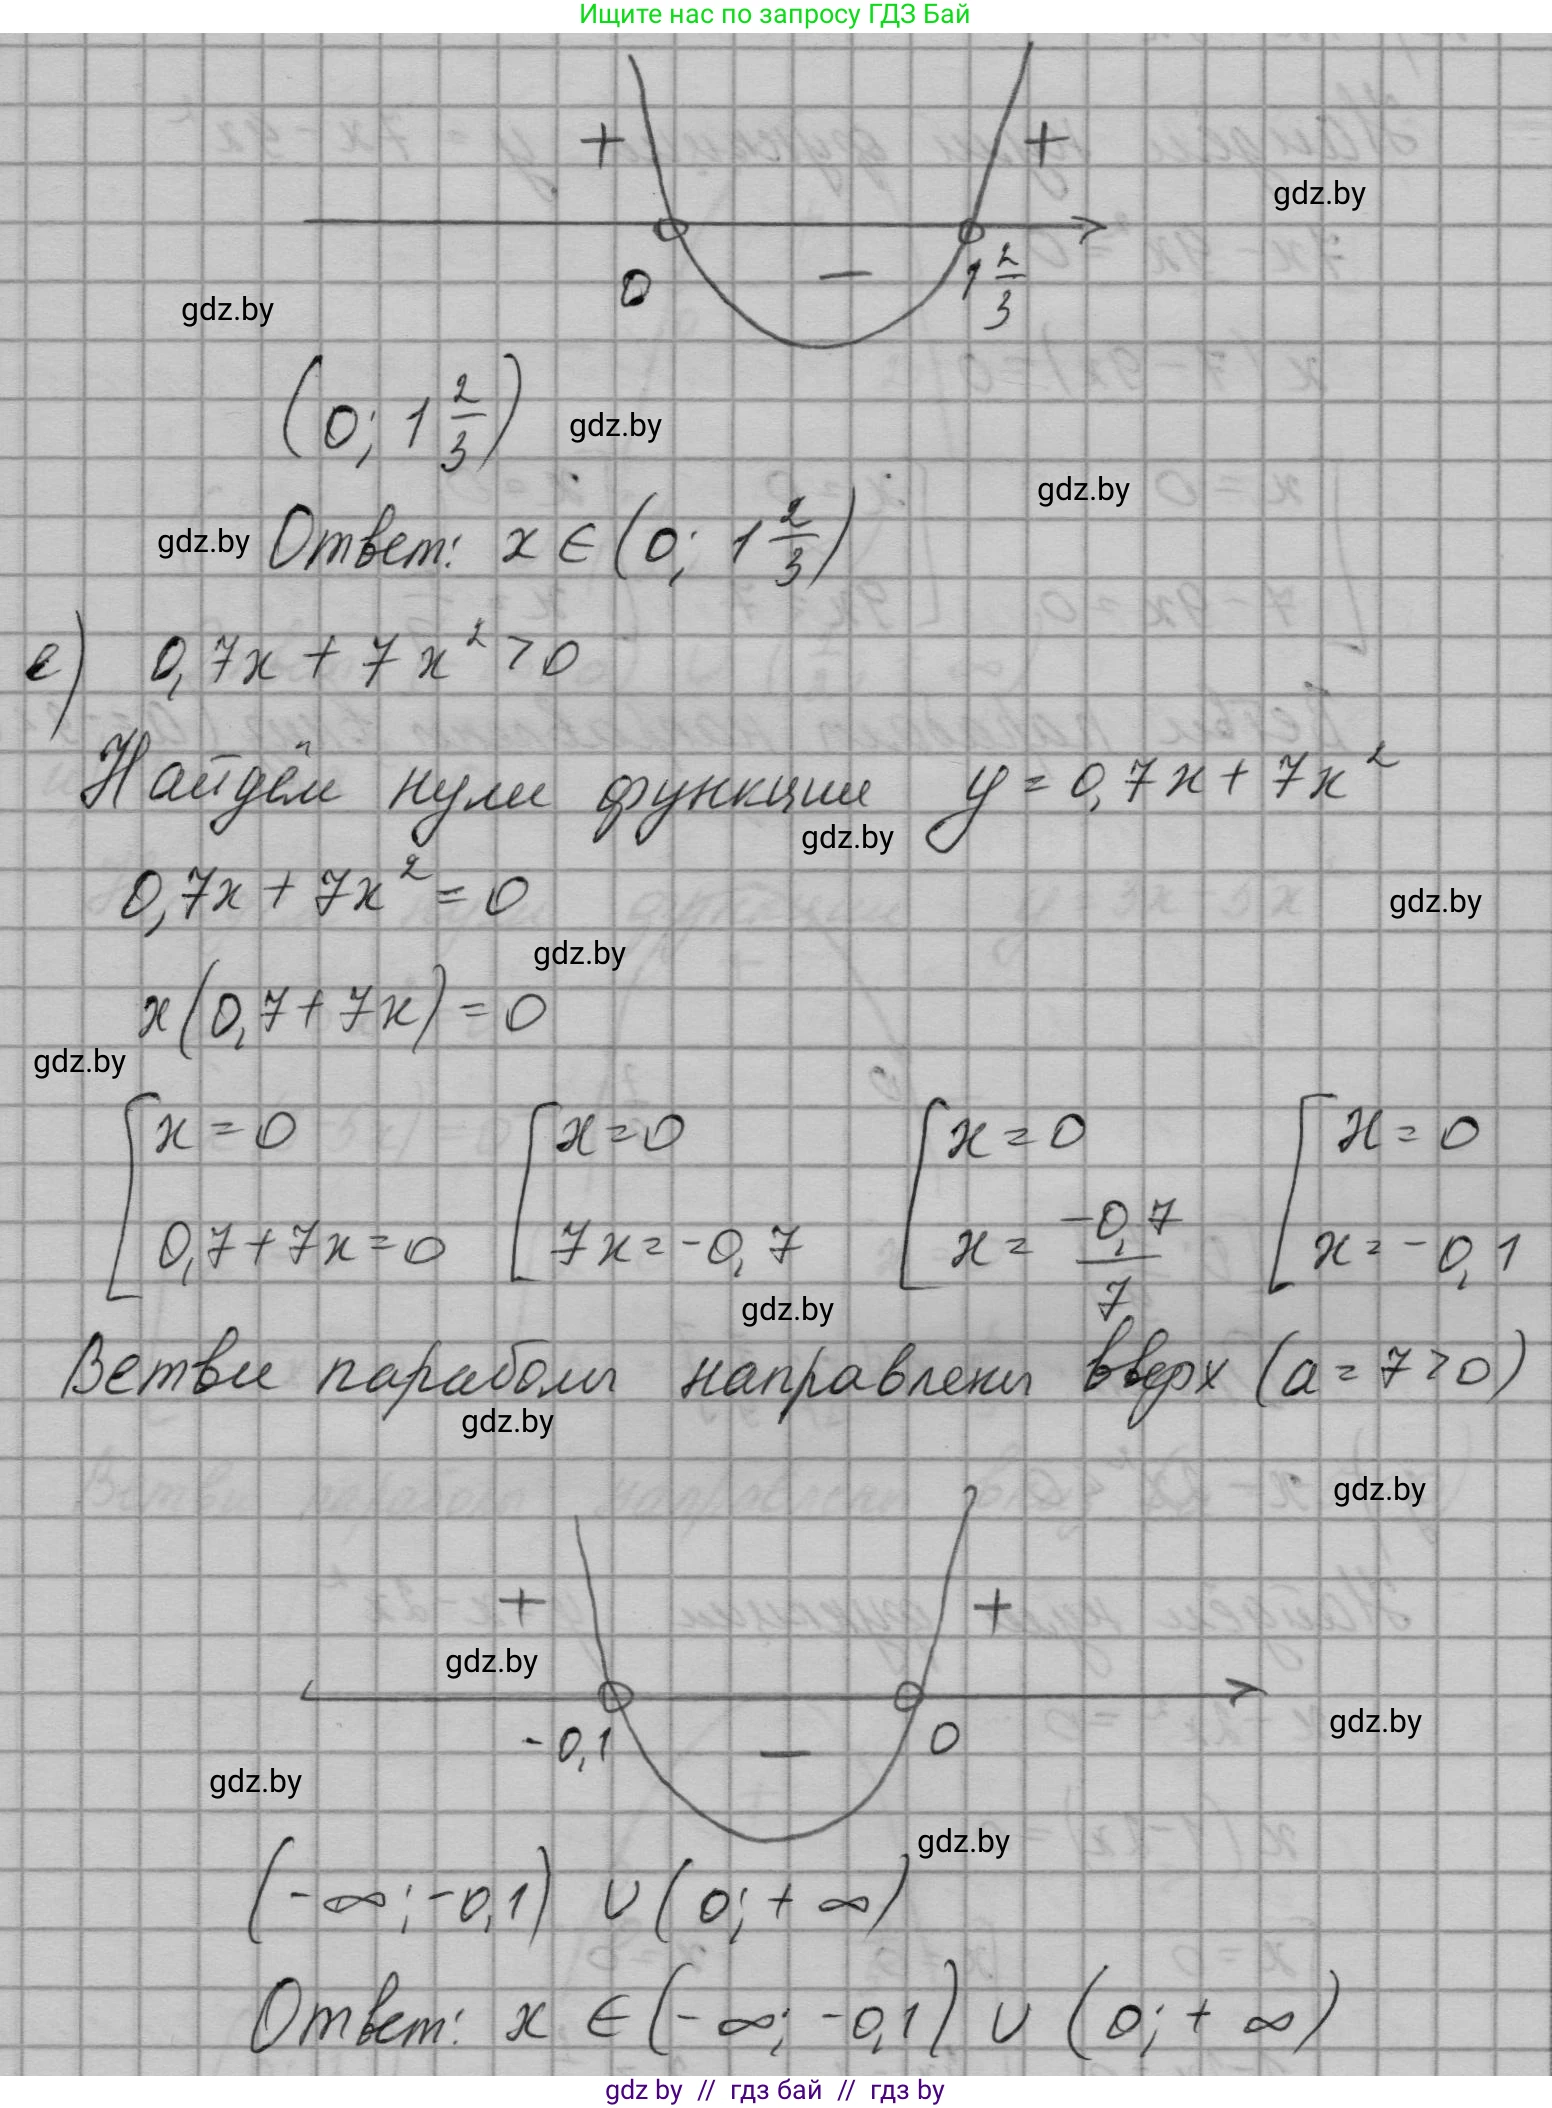 Ищите нас по запросу ГДЗ Бай
+ +
gdz.by
0 − 1 2/3
gdz.by
(0; 1 2/3)
gdz.by
gdz.by
gdz.by
Ответ: x ∈ (0; 1 2/3)
е) 0,7x + 7x² > 0
Найдём нули функции y = 0,7x + 7x²
gdz.by
0,7x + 7x² = 0
gdz.by
gdz.by
x(0,7 + 7x) = 0
gdz.by
[x = 0 [x = 0 [x = 0 [x = 0
0,7 + 7x = 0 7x = -0,7 x = -0,7/7 x = -0,1
gdz.by
Ветви параболы направлены вверх (a = 7 > 0)
gdz.by
gdz.by
+ +
gdz.by
-0,1 − 0
gdz.by
gdz.by
gdz.by
(-∞; -0,1) ∪ (0; +∞)
Ответ: x ∈ (-∞; -0,1) ∪ (0; +∞)
gdz by // гдз бай // гдз by